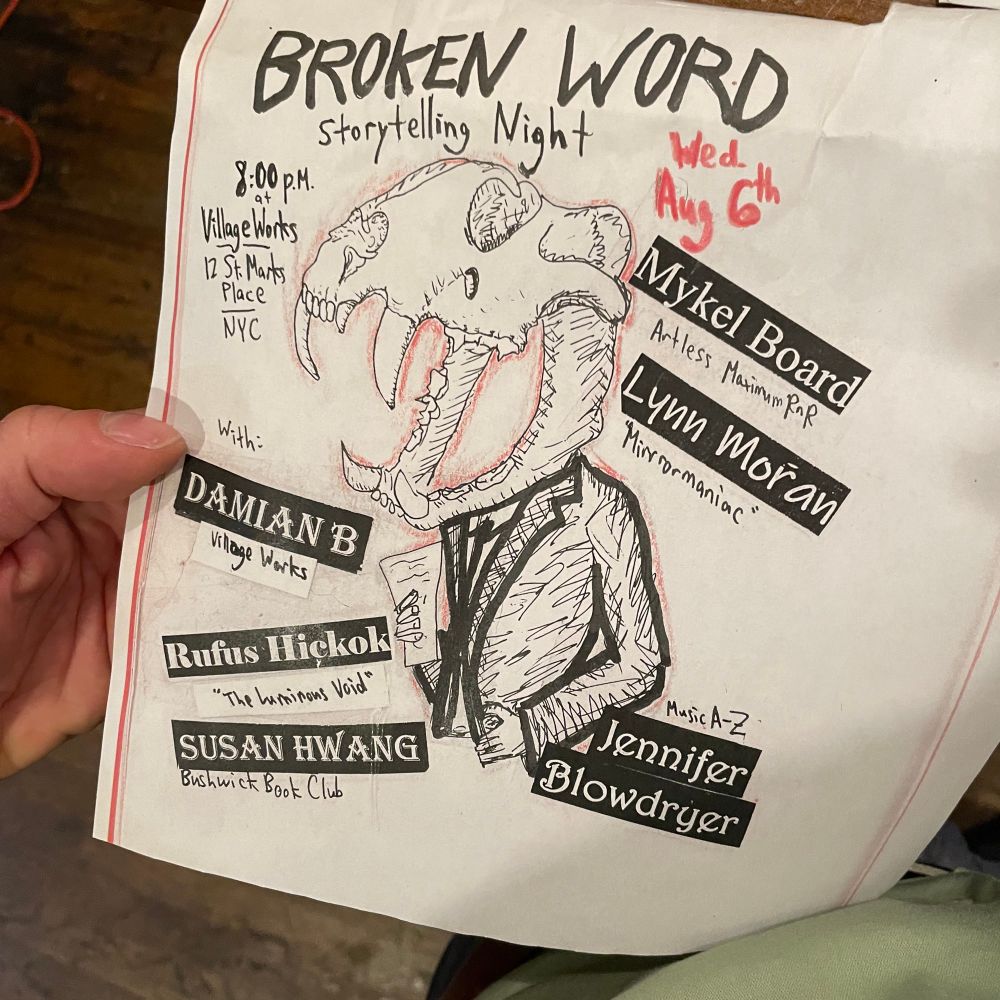 BROKEN WORD
Storytelling Night
Wed.
Aug 6th
8:00 p.m.
at
Village Works
12 St. Marks
Place
NYC
Mykel Board
Artless MaximumRnR
Lynn Moran
"Mirrormaniac"
With:
DAMIAN B
Village Works
Rufus Hickok
"The Luminous Void"
SUSAN HWANG
Bushwick Book Club
Music A-Z
Jennifer
Blowdryer